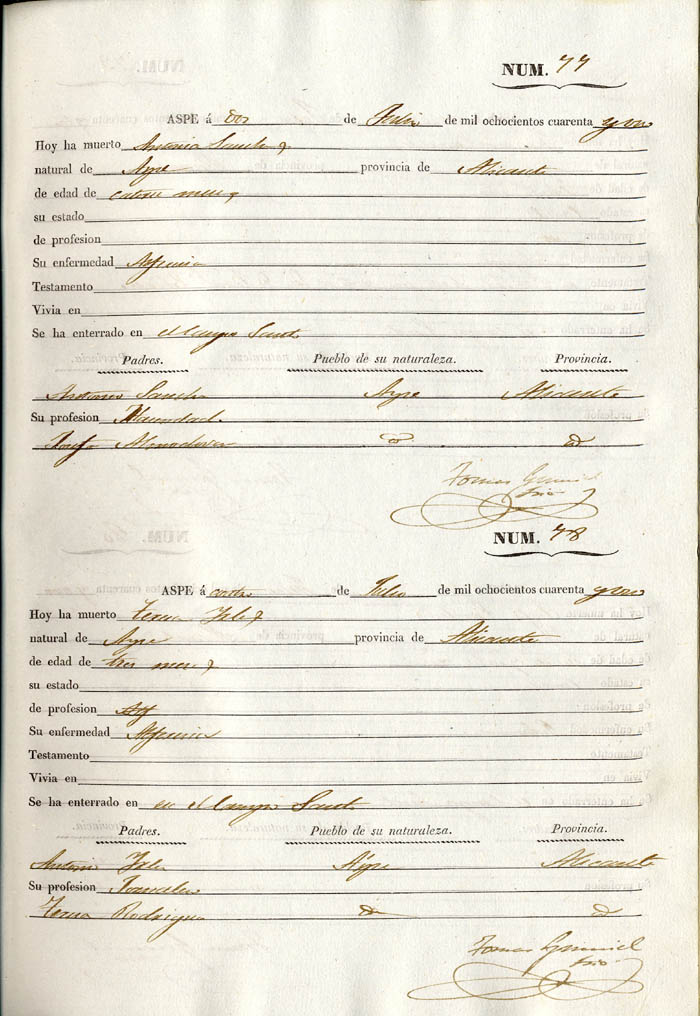 NUM. 77
ASPE á dos de Julio de mil ochocientos cuarenta y uno
Hoy ha muerto Antonia Sanchez
natural de Aspe provincia de Alicante
de edad de catorce meses
su estado
de profesion
Su enfermedad
Testamento
Vivia en
Se ha enterrado en el Campo Santo
Padres. Pueblo de su naturaleza. Provincia.
Antonio Sanchez Aspe Alicante
Su profesion
Josefa
Tomas
NUM. 78
ASPE á cuatro de Julio de mil ochocientos cuarenta y uno
Hoy ha muerto Teresa
natural de Aspe provincia de Alicante
de edad de tres meses
su estado
de profesion
Su enfermedad
Testamento
Vivia en
Se ha enterrado en en el Campo Santo
Padres. Pueblo de su naturaleza. Provincia.
Antonio Aspe Alicante
Su profesion Jornalero
Teresa Rodriguez
Tomas